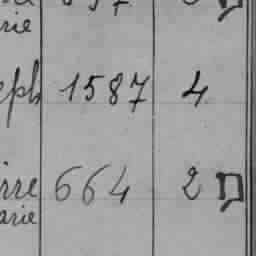 rie
eph 1587 4
rre 664 2
arie